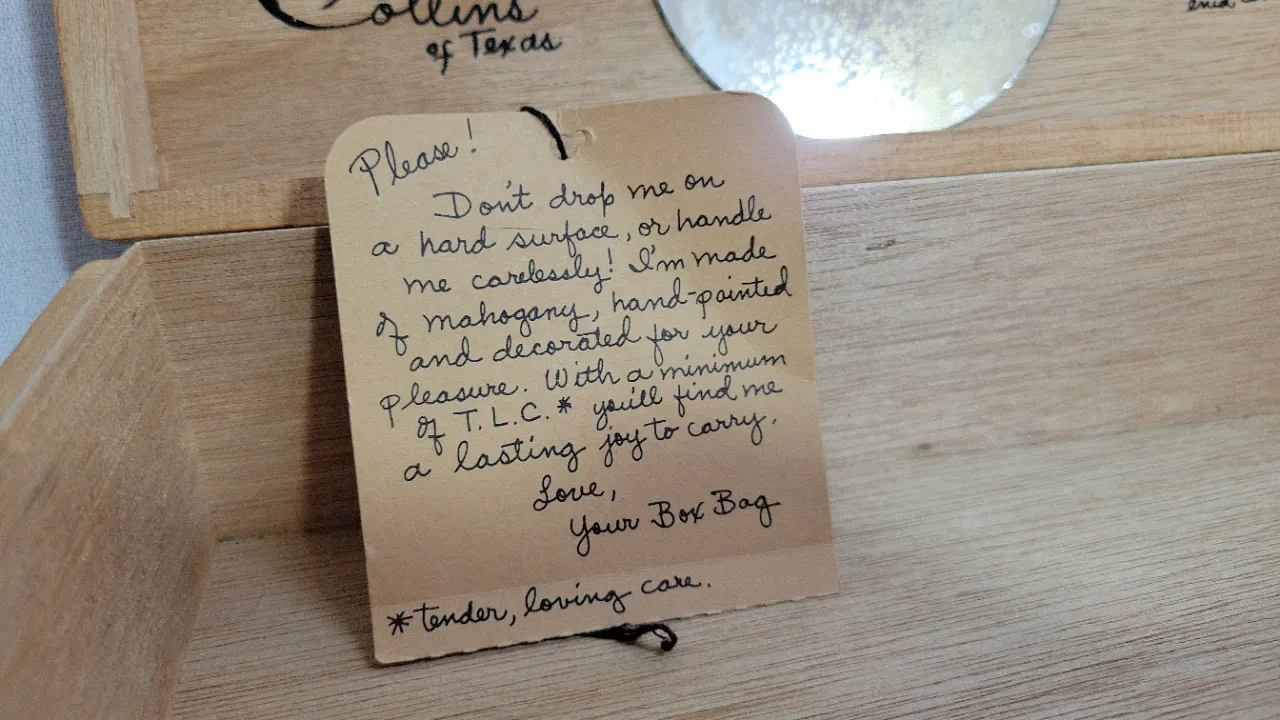 Collins
of Texas
enid
Please!
Don't drop me on
a hard surface, or handle
me carelessly! I'm made
of mahogany, hand-painted
and decorated for your
pleasure. With a minimum
of T.L.C.* you'll find me
a lasting joy to carry.
Love,
Your Box Bag
*tender, loving care.